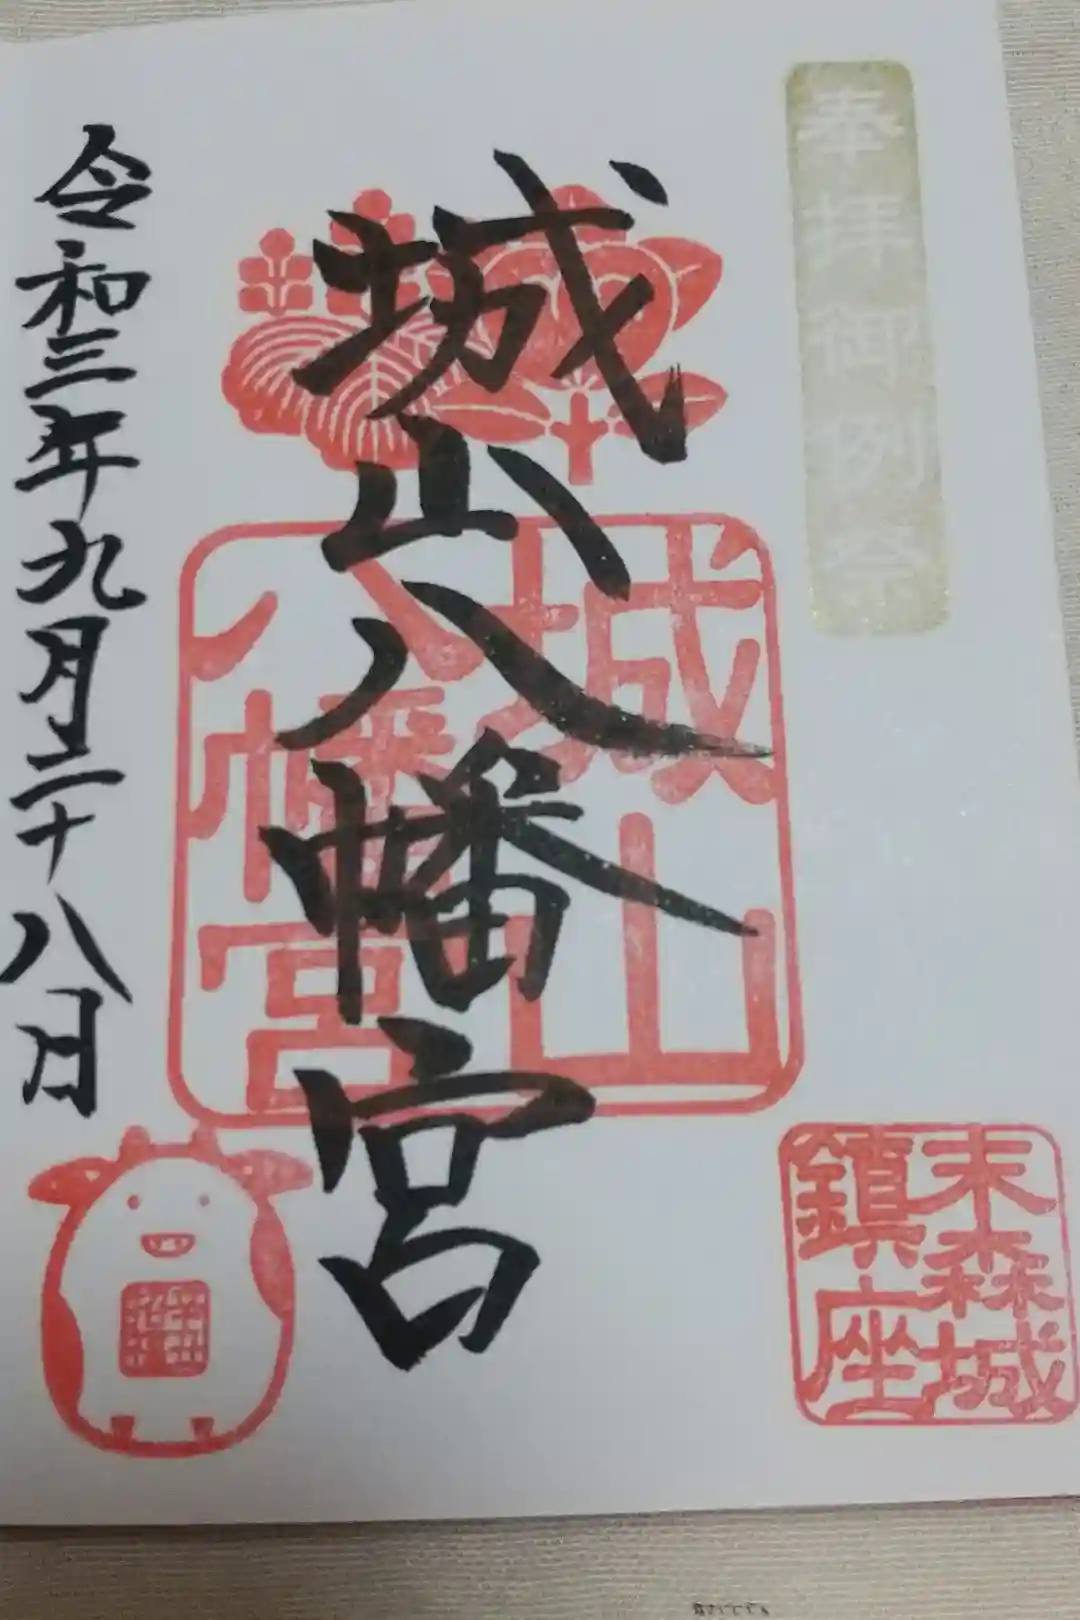 奉拝御例祭
城山八幡宮
城山
八幡宮
令和三年九月二十八日
末森城
鎮座